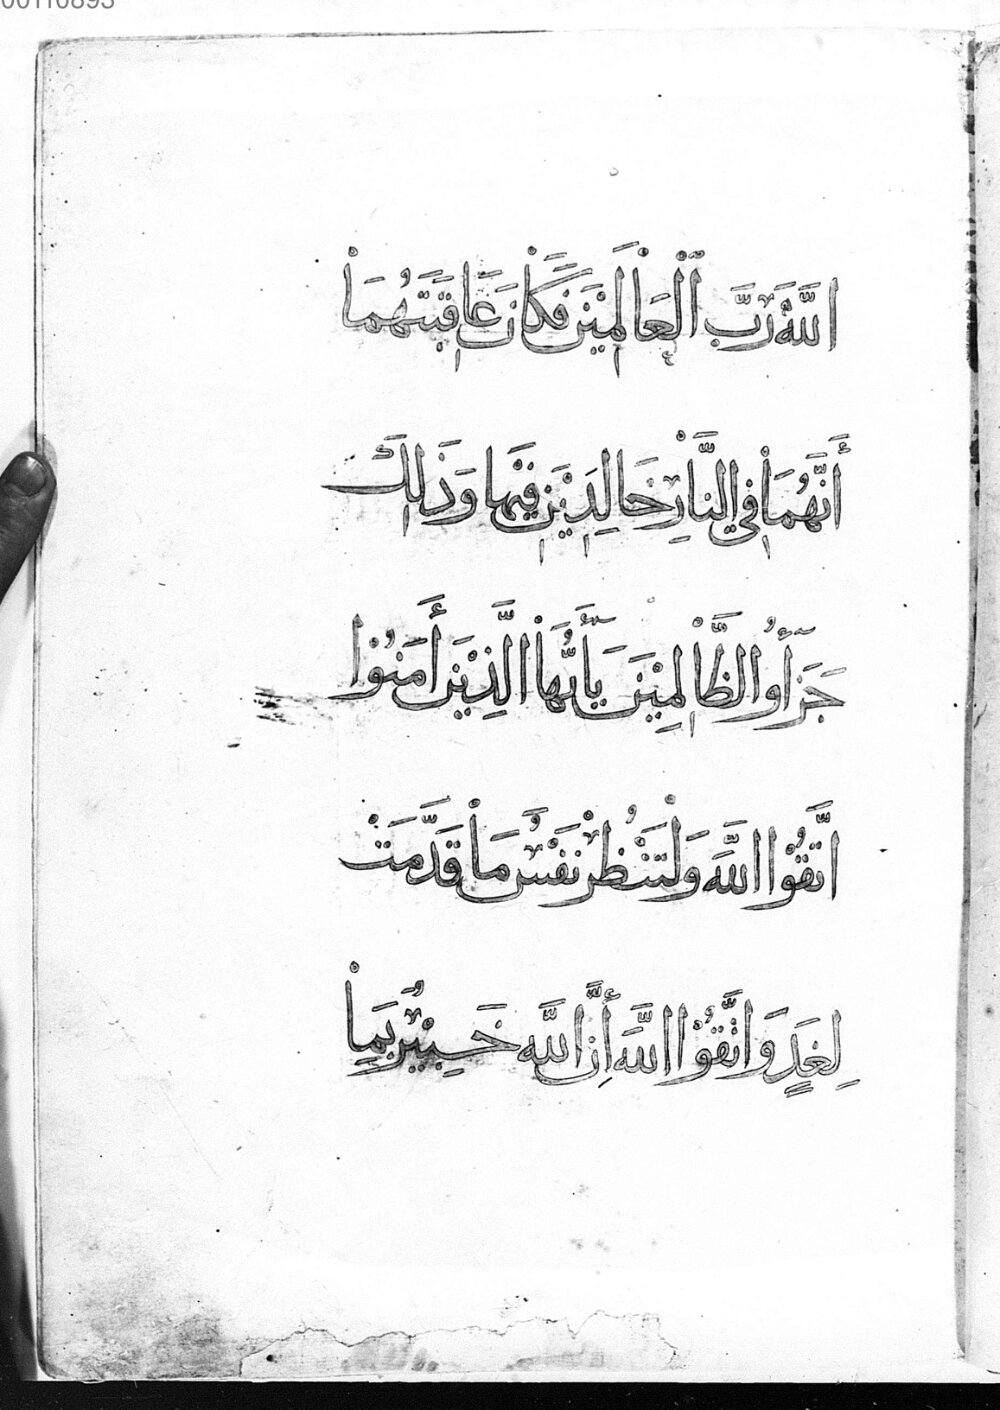 00110893
اللَّهَ رَبَّ الْعَالَمِيْنَ فَكَانَ عَاقِبَتَهُمَا
أَنَّهُمَا فِي النَّارِ خَالِدِيْنِ فِيْهَا وَذَلِكَ
جَزَآؤُا الظَّالِمِيْنَ يَآأَيُّهَا الَّذِيْنَ أَمَنُوْا
اتَّقُوْا اللَّهَ وَلْتَنْظُرْ نَفْسٌ مَا قَدَّمَتْ
لِغَدٍ وَاتَّقُوْا اللَّهَ إِنَّ اللَّهَ خَبِيْرٌ بِمَا